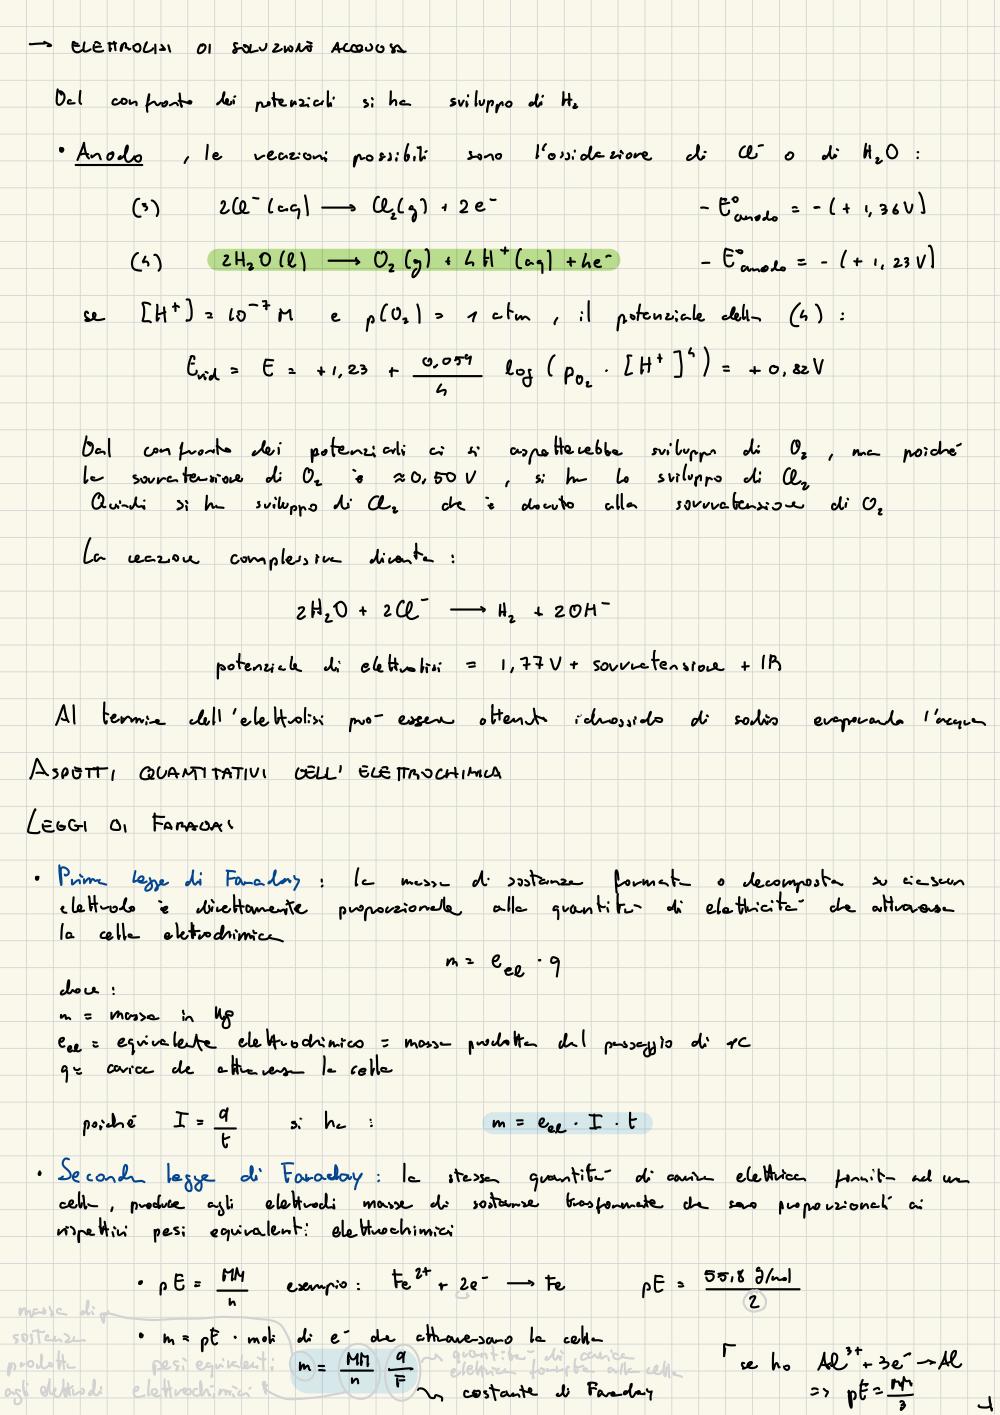 → ELETTROLISI DI SOLUZIONI ACQUOSA
Dal confronto dei potenziali si ha sviluppo di H₂
• Anodo , le reazioni possibili sono l'ossidazione di Cl⁻ o di H₂O :
(3) 2Cl⁻(aq) → Cl₂(g) + 2e⁻ - E°anodo = -(+1,36V)
(4) 2H₂O(l) → O₂(g) + 4H⁺(aq) + 4e⁻ - E°anodo = -(+1,23V)
se [H⁺] = 10⁻⁷ M e p(O₂) = 1 atm , il potenziale della (4) :
Erid = E = +1,23 + 0,059/4 log (pO₂ · [H⁺]⁴) = +0,82V
Dal confronto dei potenziali ci si aspetterebbe sviluppo di O₂ , ma poiché
la sovratensione di O₂ è ≈0,50 V , si ha lo sviluppo di Cl₂
Quindi si ha sviluppo di Cl₂ che è dovuto alla sovratensione di O₂
La reazione complessiva diventa :
2H₂O + 2Cl⁻ → H₂ + 2OH⁻
potenziale di elettrolisi = 1,77V + sovratensione + IR
Al termine dell'elettrolisi può essere ottenuto idrossido di sodio evaporando l'acqua
ASPETTI QUANTITATIVI DELL'ELETTROCHIMICA
LEGGI DI FARADAI
• Prima legge di Faraday : la massa di sostanza formata o decomposta su ciascun
elettrodo è direttamente proporzionale alla quantità di elettricità che attraversa
la cella elettrochimica
m = eel · q
dove :
m = massa in kg
eel = equivalente elettrochimico = massa prodotta dal passaggio di 1C
q = carica che attraversa la cella
poiché I = q/t si ha : m = eel · I · t
• Seconda legge di Faraday : la stessa quantità di carica elettrica fornita ad una
cella, produce agli elettrodi masse di sostanze trasformate che sono proporzionali ai
rispettivi pesi equivalenti elettrochimici
• pE = MM/n esempio : Fe²⁺ + 2e⁻ → Fe pE = 55,8 g/mol / 2
massa di
sostanza
prodotta
agli elettrodi
• m = pE · moli di e⁻ che attraversano la cella
pesi equivalenti
elettrochimici
m = MM/n q/F
quantità di carica
elettrica fornita alla cella
costante di Faraday
se ho Al³⁺ + 3e⁻ → Al
=> pE = MM/3